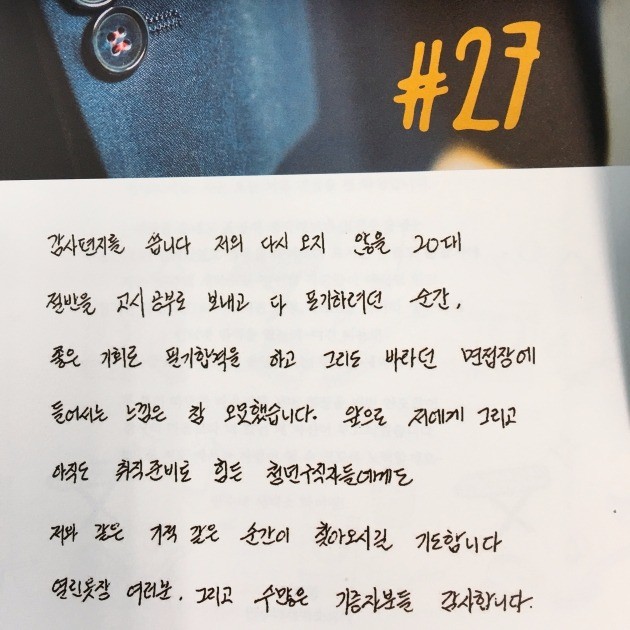 #27
감사편지를 씁니다 저의 다시 오지 않을 20대
절반을 고시공부로 보내고 다 포기하려던 순간,
좋은 기회로 필기합격을 하고 그리도 바라던 면접장에
들어서는 느낌은 참 오묘했습니다. 앞으로 저에게 그리고
아직도 취직준비로 힘든 청년구직자들에게도
저와 같은 기적 같은 순간이 찾아오시길 기도합니다
열린옷장 여러분, 그리고 수많은 기증자분들 감사합니다.